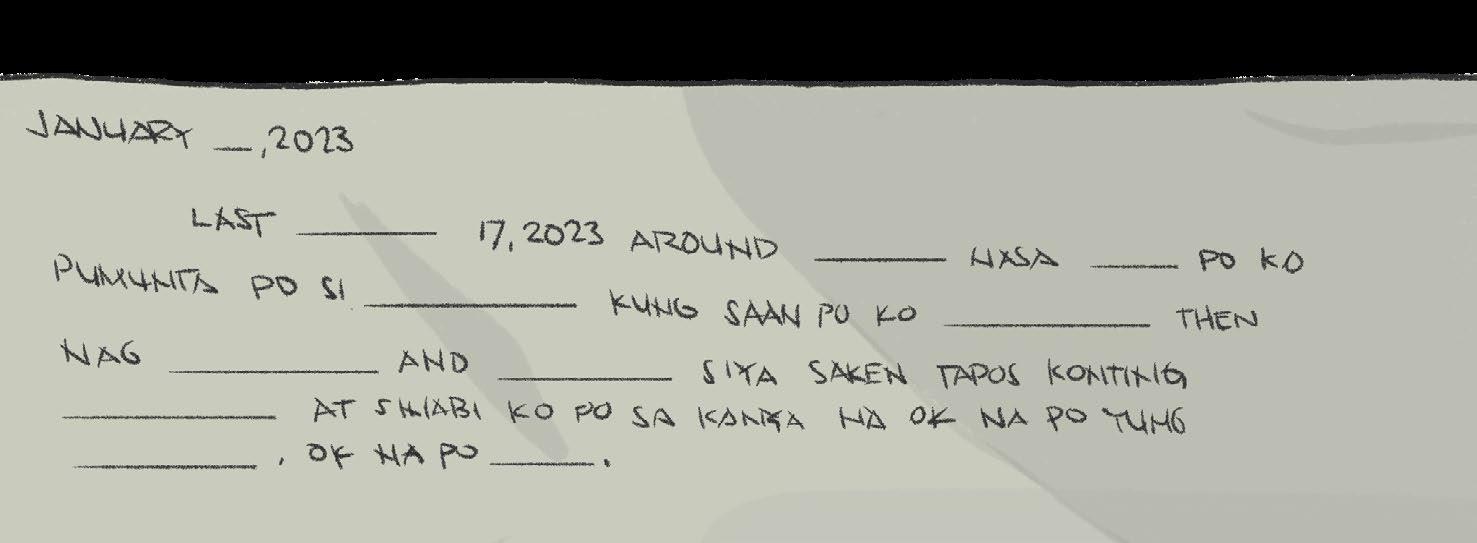 JANUARY __, 2023
LAST ________ 17, 2023 AROUND ________ NASA _____ PO KO
PUMUNTA PO SI ____________ KUNG SAAN PO KO ____________ THEN
NAG ____________ AND __________ SIYA SAKEN TAPOS KONTING
____________ AT SINABI KO PO SA KANYA NA OK NA PO YUNG
__________, OK NA PO ______.